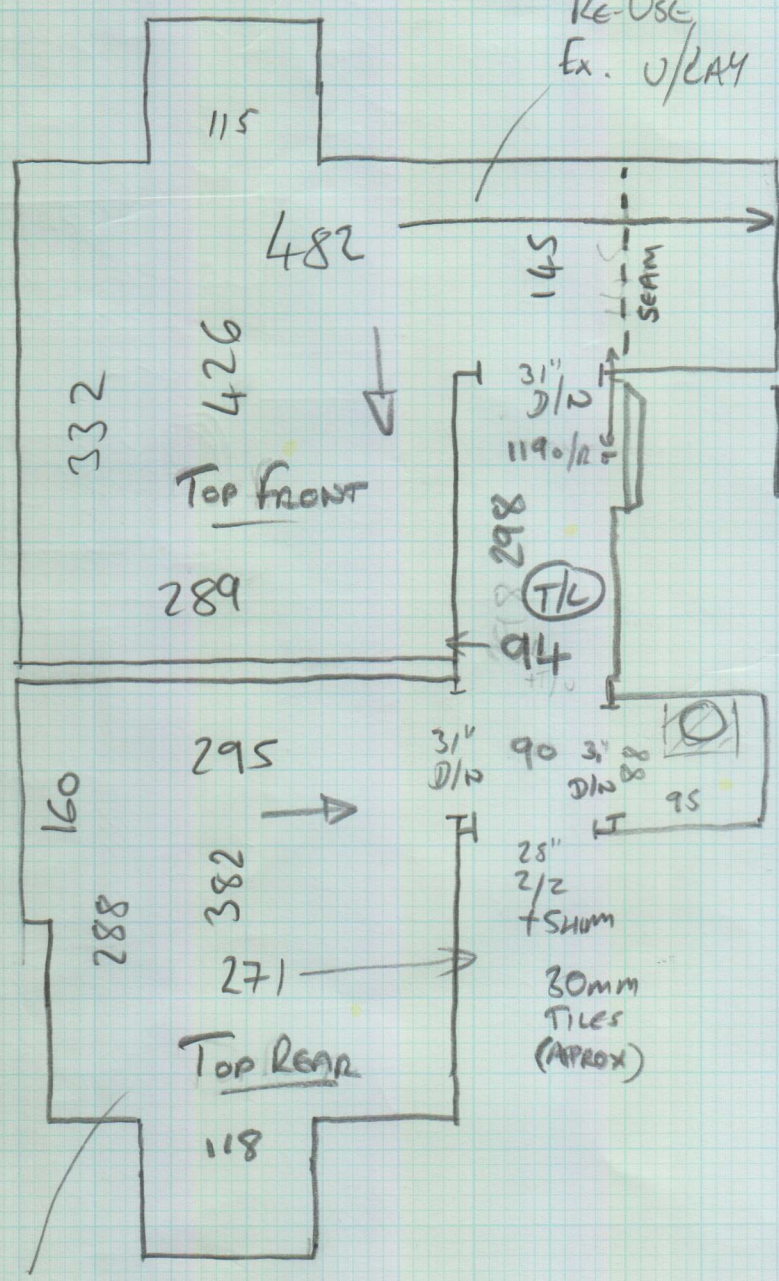 RE-USE
Ex. U/LAY
115
482
145
SEAM
426
332
31"
D/N
TOP FRONT
298
289
T/L
94
295
31"
D/N
90
31"
D/N
88
95
160
382
288
28"
2/2
271
30mm
TILES
(APROX)
TOP REAR
118